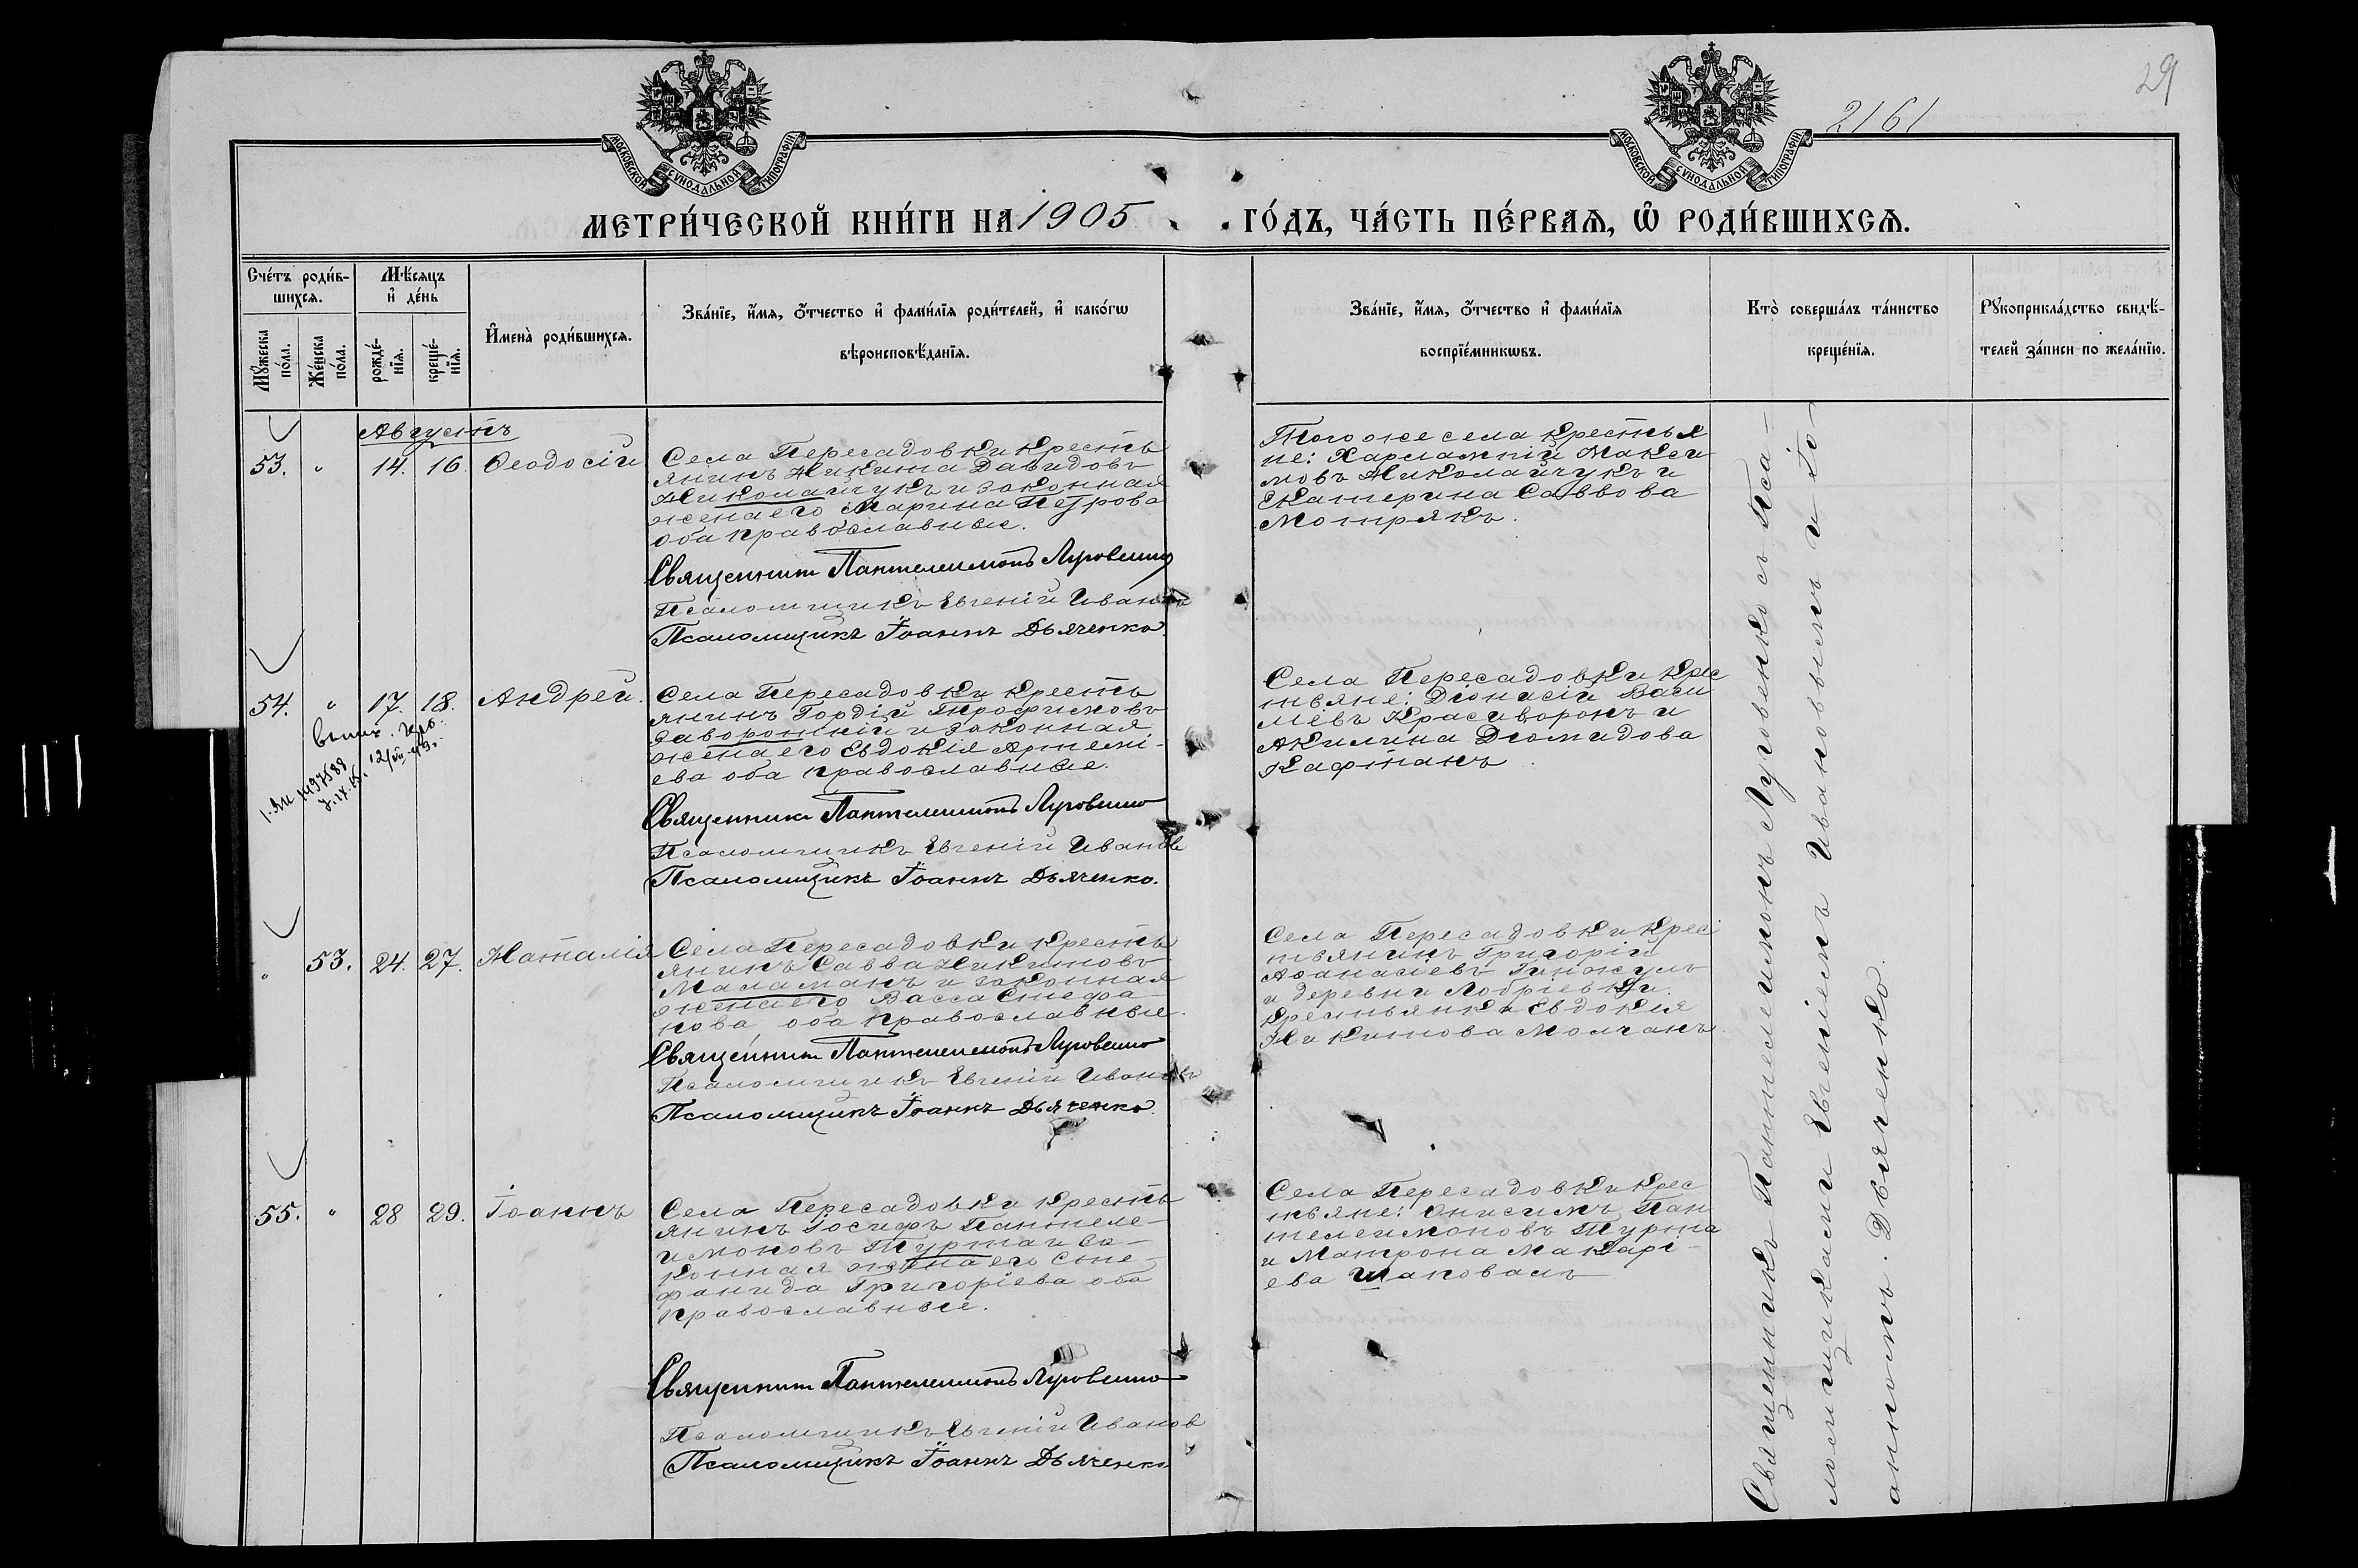 29
2161
МОСКОВСКОЙ СѴНОДАЛЬНОЙ ТИПОГРАФІИ
МОСКОВСКОЙ СѴНОДАЛЬНОЙ ТИПОГРАФІИ
МЕТРИ́ЧЕСКОЙ КНИ́ГИ НА 1905 ГО́ДЪ, ЧА́СТЬ ПЕ́РВАЯ, Ѡ РОДИ́ВШИХСЯ.
Сче́тъ роди́в-
шихся.
Мѣ́сяцъ
и де́нь
Мꙋ́жеска
по́ла.
Же́нска
по́ла.
рожде́-
нїя.
креще́-
нїя.
Имена̀ роди́вшихся.
Зва́нїе, и́мя, ѻ́тчество и фами́лїя роди́телей, и како́гѡ
вѣроисповѣ́данїя.
Зва́нїе, и́мя, ѻ́тчество и фами́лїя
воспрїе́мникѡвъ.
Кто̀ соверша́лъ та́инство
креще́нїя.
Рꙋкоприкла́дство свидѣ́-
телей за́писи по жела́нїю.
Августъ
53. " 14. 16. Ѳеодосій
Села Пересадовки кресть
янинъ Никита Давидовъ
Николайчукъ и законная
жена его Марина Петрова
оба православные.
Священник Пантелеимонъ Луговенко
Псаломщикъ Евгеній Ивановъ
Псаломщикъ Іоаннъ Дьяченко.
Того же села крестья
не: Харлампій Макси
мовъ Николайчукъ и
Екатерина Саввова
Мотрякъ.
54. " 17. 18. Андрей.
1497588
Села Пересадовки кресть
янинъ Гордій Трофимовъ
Заворотній и законная
жена его Евдокія Артемі-
ева оба православные.
Священник Пантелеимонъ Луговенко
Псаломщикъ Евгеній Ивановъ
Псаломщикъ Іоаннъ Дьяченко.
Села Пересадовки крес
тьяне: Діонисій Васи
ліевъ Красиворонъ и
Акилина Діомидова
Кафтанъ.
" 53. 24. 27. Наталія
Села Пересадовки кресть
янинъ Савва Никитовъ
Маламанъ и законная
жена его Васса Стефа-
нова, оба православные.
Священник Пантелеимонъ Луговенко
Псаломщикъ Евгеній Ивановъ
Псаломщикъ Іоаннъ Дьяченко.
Села Пересадовки крес
тьянинъ Григорій
Аѳанасіевъ Гинжулъ
и деревни Лобріевки
крестьянка Евдокія
Никитова Молчанъ.
55. " 28 29. Іоаннъ
Села Пересадовки кресть
янинъ Іосифъ Пантеле-
имоновъ Турта и за-
конная жена его Сте-
фанида Григоріева оба
православные.
Священник Пантелеимонъ Луговенко
Псаломщикъ Евгеній Иванов
Псаломщикъ Іоаннъ Дьяченко
Села Пересадовки крес
тьяне: Онисимъ Пан
телеимоновъ Турта
и Матрона Макарі-
ева Шаповалъ
Священникъ Пантелеимонъ Луговенко съ Пса-
ломщиками Евгеніемъ Ивановымъ и Іо-
анномъ Дьяченко.